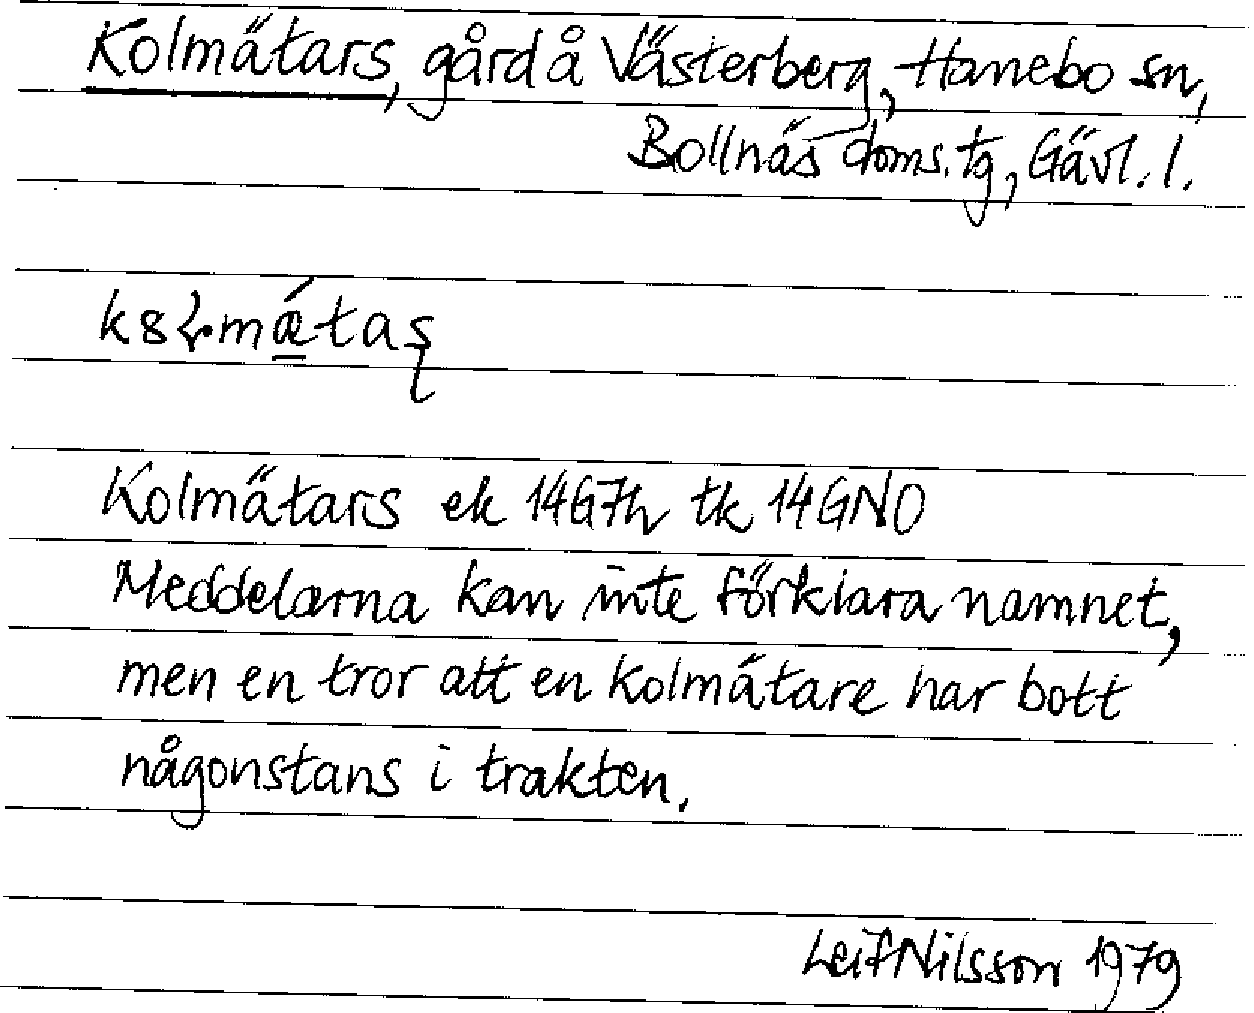 Kolmätars, gård å Västerberg, Hanebo sn,
Bollnäs doms. tg, Gävl. l.
Kolmätars ek 14G7h tk 14GNO
Meddelarna kan inte förklara namnet,
men en tror att en kolmätare har bott
någonstans i trakten.
Leif Nilsson 1979